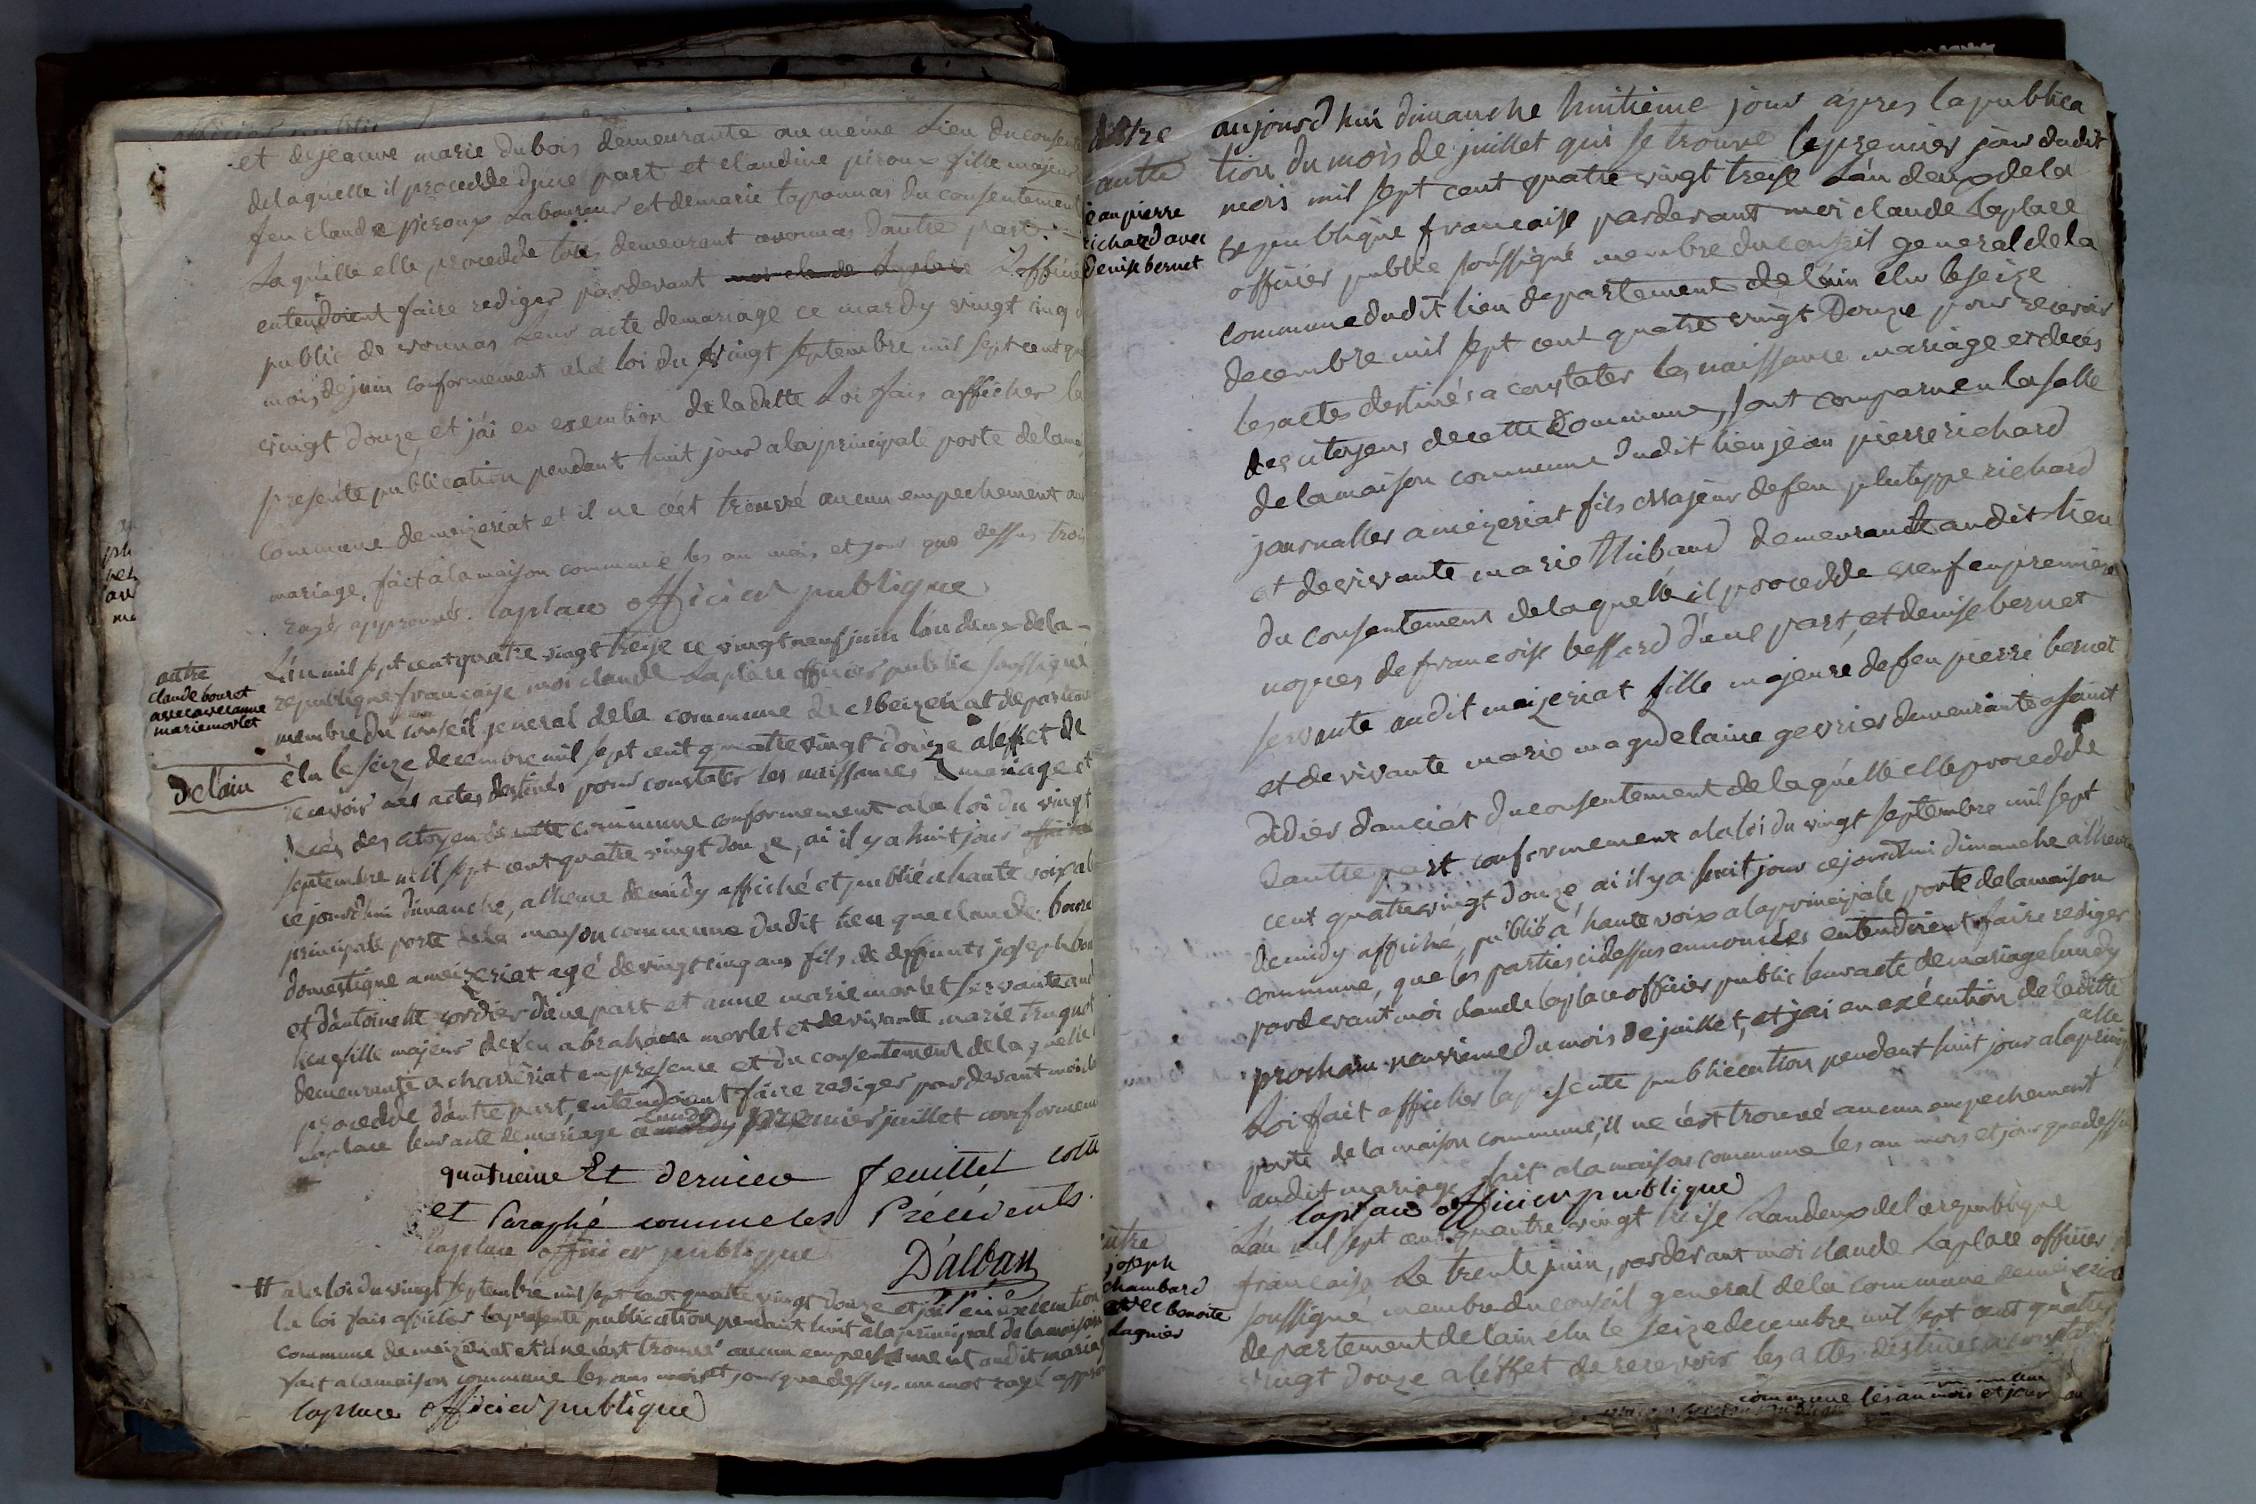 et de jeanne marie dubois demeurante au même Lieu du consente
delaquelle il procedde d'une part et claudine piroux fille majeur
feu claude piroux Laboureur et de marie taponnas du consentement
Laquelle elle procedde tous demeurant avonnas d'autre part
entendoient faire rediger pardevant Loffici
public de vonnas Leur acte demariage ce mardy vingt cinq d
mois de juin conformement ala loi du vingt septembre mil sept cent qua
vingt douze, et j'ai en execution de ladette Loi fais afficher la
presente publication pendant huit jour ala principale porte delama
commune demeizeriat et il ne cést trouvé aucun empechement au
mariage, fait à la maison commune les an mois et jour que dessus trois
rayé approuvés. laplace officier publique
autre
claude bouret
avec anne
marie morlet
L'an mil sept cent quatre vingt treize ce vingt neuf juin l'an deux dela
republique française moi claude Laplace officier public soussigné
membre du conseil general dela commune de meizeriat departem
delain
élu le seize decembre mil sept cent quatre vingt douze aleffet de
recevoir les actes destinés pour constater les naissances mariage et
décés des citoyen de cette commune conformement ala loi du vingt
septembre mil sept cent quatre vingt douze, ai il y a huit jour
ce jourd'hui dimanche, alheure de midy affiché et publié a haute voix ala
principale porte dela maison commune dudit lieu que claude bouret
domestique a meizeriat agé de vingt cinq ans fils de deffunts joseph bou
et d'antoinette cordier d'une part et anne marie morlet servante aud
lieu fille majeur de feu abraham morlet et de vivante marie truquet
demeurante a chaveriat en presence et du consentement de la quelle
procedde d'autre part, entendoient faire rediger pardevant moi
Laplace leur acte demariage ce lundy premier juillet conformem
quatrieme Et dernier feuillet cotté
et Paraphé comme les Précédents.
laplace officier publique
D'alban
# ala loi du vingt septembre mil sept cent quatre vingt douze et j'ai en execution
la loi fais afficher la presente publication pendant huit ala principal de la maison
commune de meizeriat et il ne cést trouvé aucun empechement audit mariag
fait ala maison commune les ans mois et jour que dessus. un mot rayé approu
laplace officier publique
autre
jean pierre
richard avec
denise bernet
aujourd'hui dimanche huitième jour apres la publica
tion du mois de juillet qui se trouve le premier jour dudit
mois mil sept cent quatre vingt treize L'an deux de la
republique francaise pardevant moi claude laplace
officier public soussigné membre du conseil general de la
commune dudit lieu departement de lain elu le seize
decembre mil sept cent quatre vingt Douze pour recevoir
les actes destinés a constater les naissance mariage et decés
des citoyens de cette commune, sont comparu en la salle
de la maison commune dudit lieu jean pierre richard
journallier a meizeriat fils majeur de feu philippe richard
et de vivante marie thibaud demeurante audit lieu
du consentement de laquelle il procedde veuf en premiere
nopces de francoise bessard d'une part, et denise bernet
servante audit meizeriat fille majeure de feu pierre bernet
et de vivante marie magdelaine gevrier demeurante a saint
didier d'auciat du consentement de la quelle elle procedde
d'autre part conformement ala loi du vingt septembre mil sept
cent quatre vingt douze, ai il y a huit jour ce jourd'hui dimanche a l'heure
de midy affiché, publié à haute voix a la principale porte de la maison
commune, que les parties cidessus ennoncées entendoient faire rediger
pardevant moi claude laplace officier public leur acte de mariage lundy
prochain neuvieme du mois de juillet, et jai en exécution de ladite
Loi fait afficher la presente publication pendant huit jour a la princip
alle
porte de la maison commune, il ne cést trouvé aucun empechement
audit mariage, fait ala maison commune les an mois et jour que dessus
laplace officier publique
autre
joseph
chambard
avec benoite
Lagnier
L'an mil sept cent quatre vingt treise L'an deux de la republique
francaise Le trente juin, pardevant moi claude Laplace officier
soussigné membre du conseil general de la commune de meizeria
departement de lain elu le seize decembre mil sept cent quatre
vingt douze a léffet de recevoir les actes destinés a constat
commune les an mois et jour